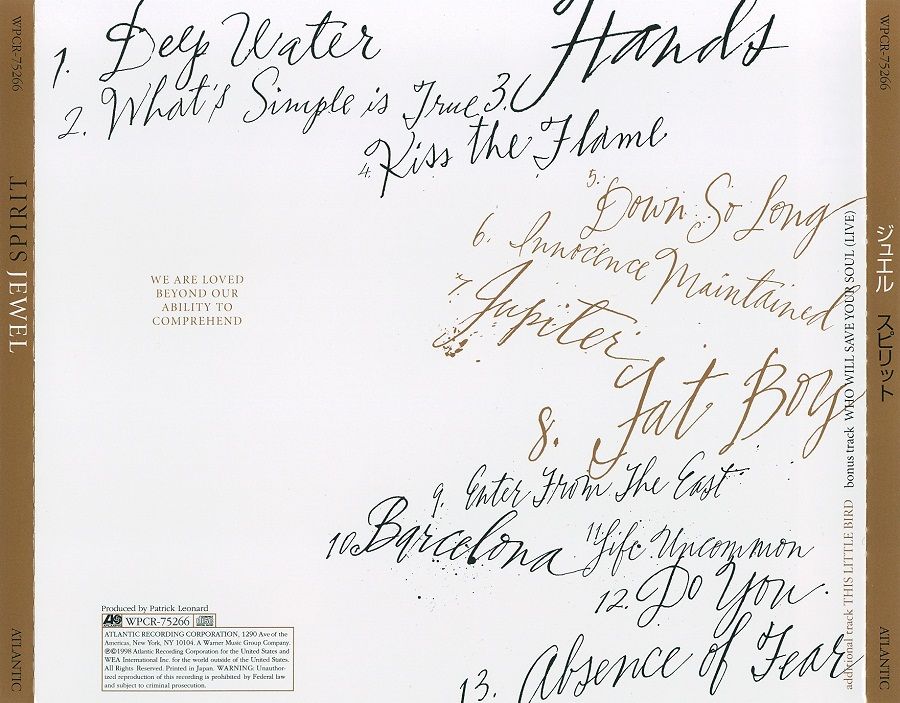 WPCR-75266
SPIRIT JEWEL
ATLANTIC
1. Deep Water
2. What's Simple is True
3. Hands
4. Kiss the Flame
5. Down So Long
6. Innocence Maintained
7. Jupiter
8. Fat Boy
9. Enter From The East
10. Barcelona
11. Life Uncommon
12. Do You.
13. Absence of Fear
WE ARE LOVED
BEYOND OUR
ABILITY TO
COMPREHEND
Produced by Patrick Leonard
WPCR-75266
ATLANTIC RECORDING CORPORATION, 1290 Ave of the
Americas, New York, NY 10104. A Warner Music Group Company.
℗©1998 Atlantic Recording Corporation for the United States and
WEA International Inc. for the world outside of the United States.
All Rights Reserved. Printed in Japan. WARNING: Unauthor-
ized reproduction of this recording is prohibited by Federal law
and subject to criminal prosecution.
additional track THIS LITTLE BIRD bonus track WHO WILL SAVE YOUR SOUL (LIVE)
WPCR-75266
ジュエル スピリット
ATLANTIC